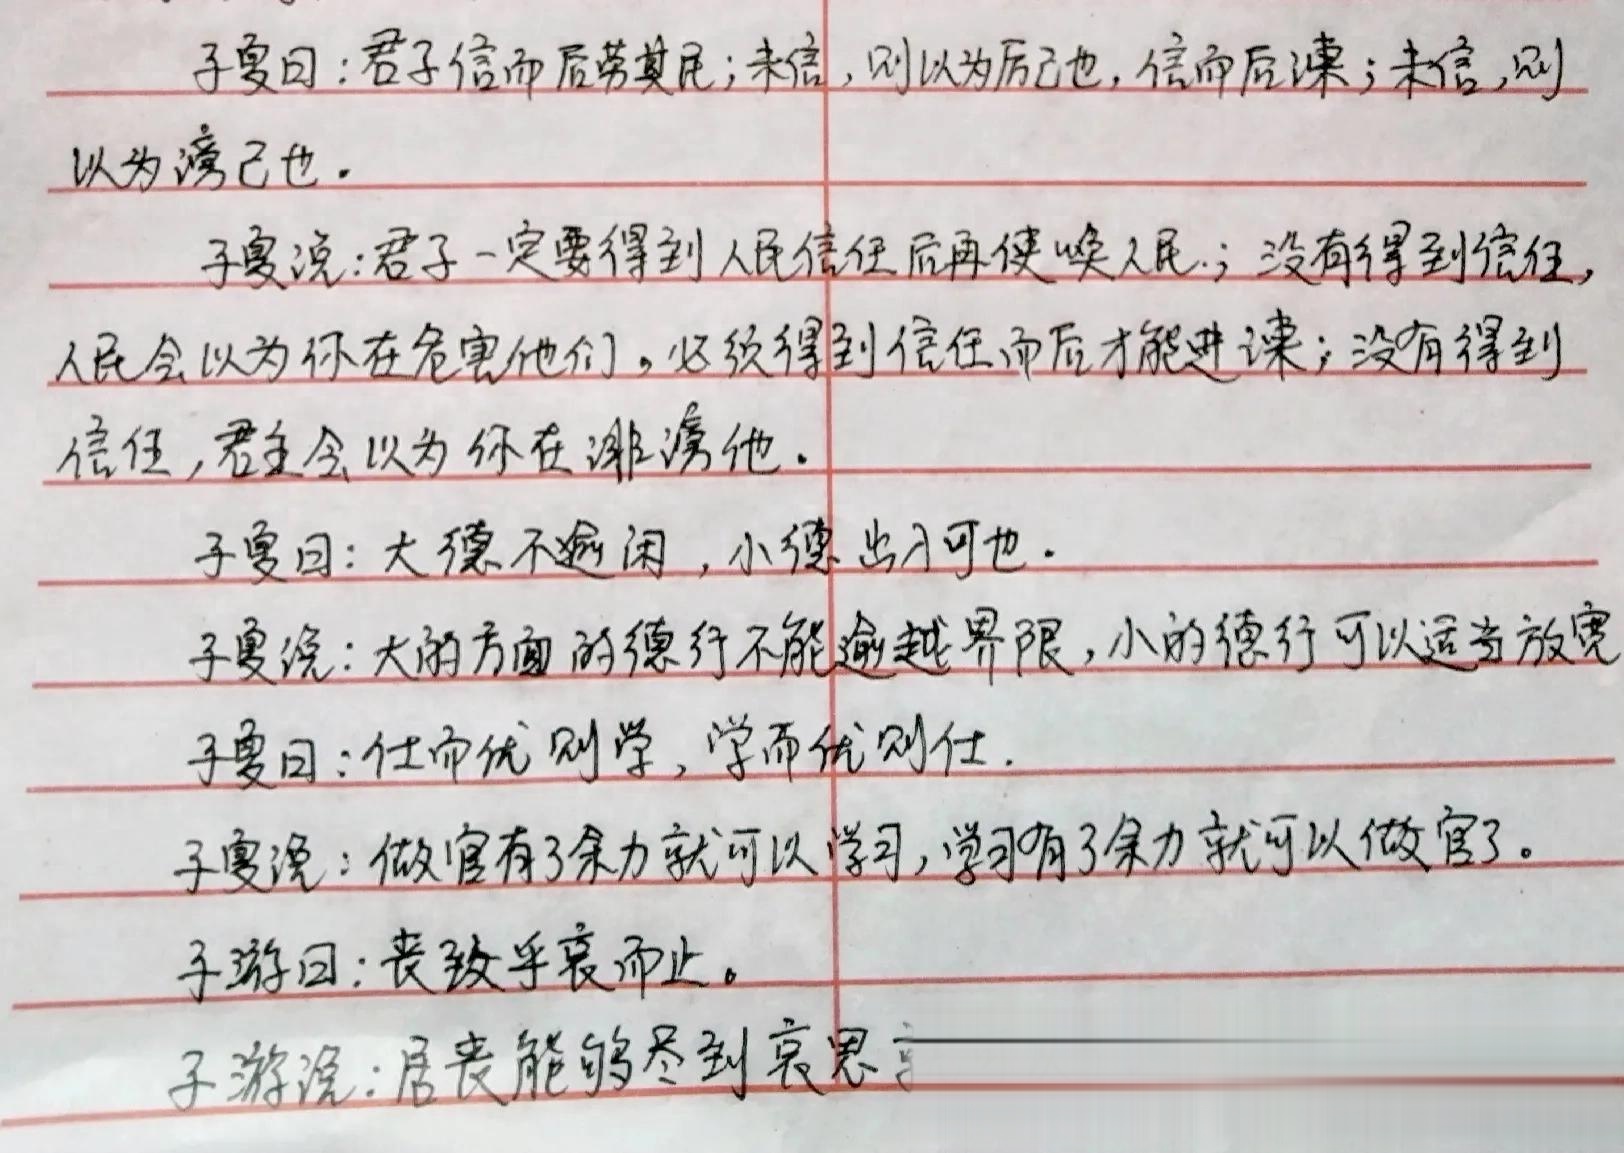 子夏曰：君子信而后劳其民；未信，则以为厉己也，信而后谏；未信，则
以为谤己也.
子夏说：君子一定要得到人民信任后再使唤人民.；没有得到信任，
人民会以为你在危害他们。必须得到信任而后才能进谏；没有得到
信任，君主会以为你在诽谤他.
子夏曰：大德不逾闲，小德出入可也.
子夏说：大的方面的德行不能逾越界限，小的德行可以适当放宽
子夏曰：仕而优则学，学而优则仕.
子夏说：做官有了余力就可以学习，学习有了余力就可以做官了。
子游曰：丧致乎哀而止。
子游说：居丧能够尽到哀思